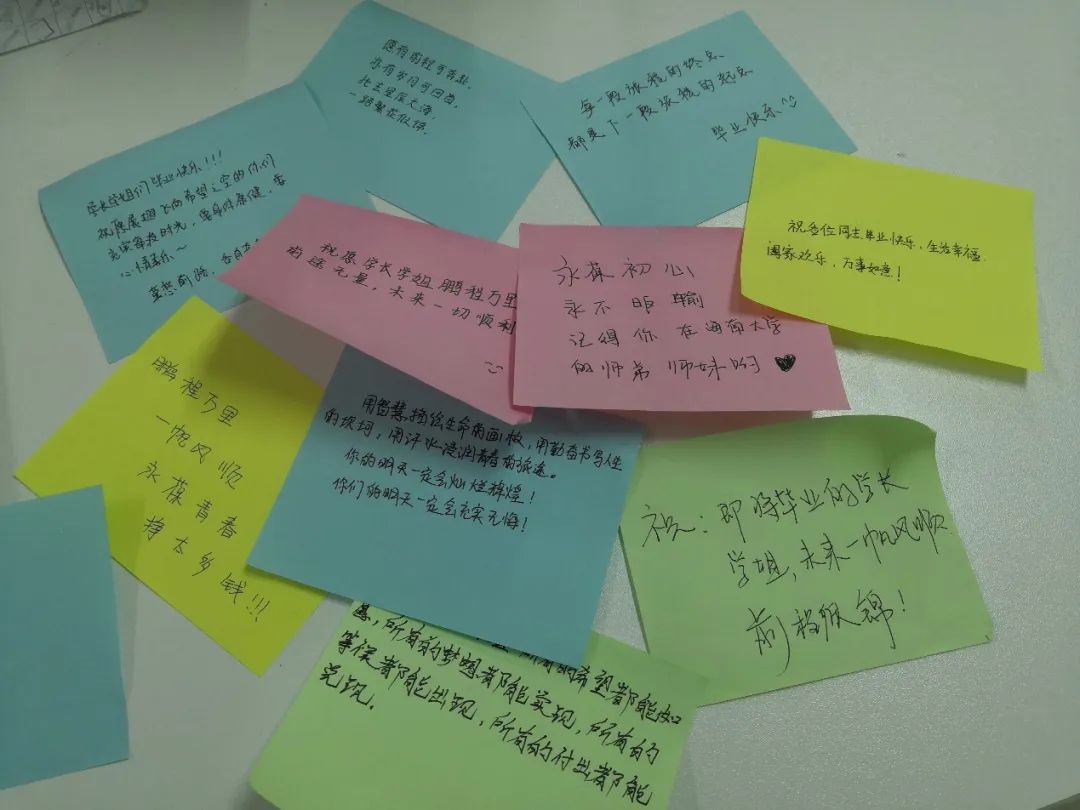 愿有前程可奔赴,
亦有岁月可回首,
此去星辰大海,
一路繁花似锦.
每一段旅程的终点
都是下一段旅程的起点
毕业快乐^^
学长学姐们毕业快乐!!!
祝愿展翅飞向希望之空的你们
充实每段时光,要身体康健,要
心情喜乐.~
莫愁前路,各自
祝各位同志毕业快乐,生活幸福.
阖家欢乐,万事如意!
祝愿学长学姐鹏程万里
前途无量,未来一切顺利
永葆初心
永不
记得你在海南大学
的师弟师妹哟♥
鹏程万里
一帆风顺
永葆青春
挣大多钱!!!
用智慧描绘生命的画板,用勤奋书写人生
的坎坷,用汗水浸润青春的旅途。
你的明天一定会灿烂辉煌!
你们的明天一定会充实无悔!
祝:即将毕业的学长
学姐,未来一帆风顺
前程似锦!
愿,所有的希望都能如
愿,所有的梦想都能实现,所有的
等候都能出现,所有的付出都能
兑现.